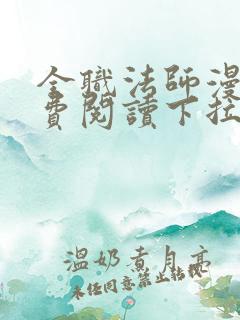 全職法師漫
費閱讀下拉
溫奶煮月亮
未經同意禁止轉載